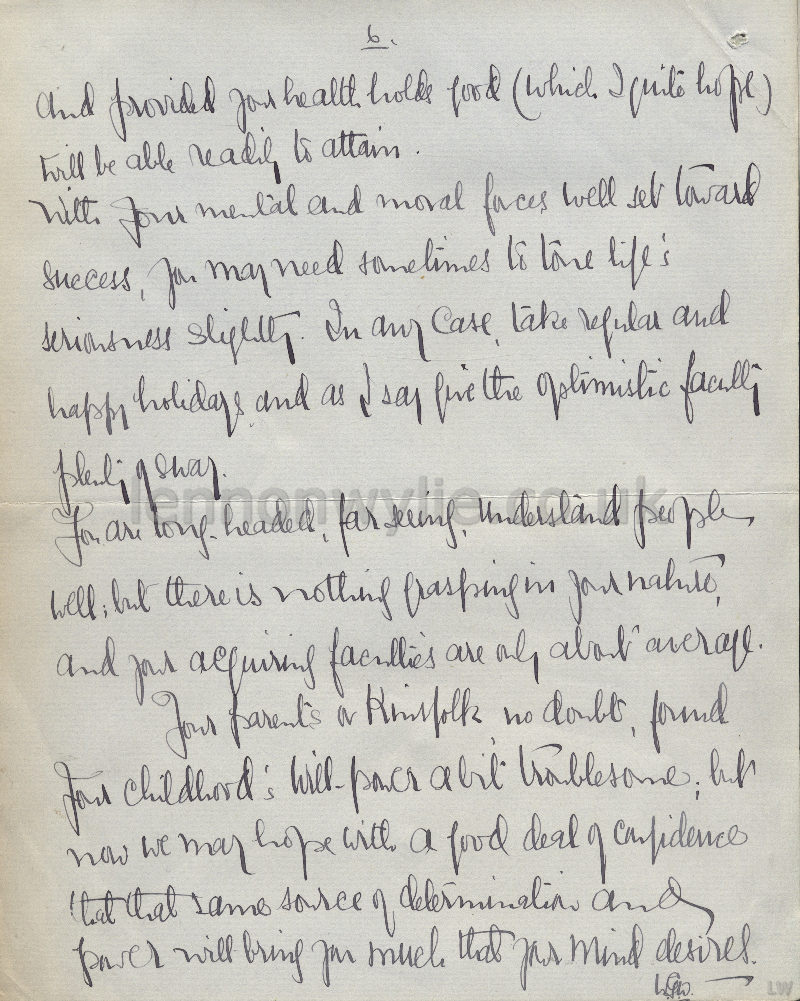 6.
and provided your health holds good (which I quite hope)
will be able readily to attain.
With your mental and moral forces well set toward
success, you may need sometimes to tone life's
seriousness slightly. In any case, take regular and
happy holidays and as I say give the optimistic faculty
plenty of sway.
lennonwylie.co.uk
You are long-headed, far seeing, understand people
well; but there is nothing grasping in your nature,
and your acquiring faculties are only about average.
Your parents or Kinsfolk, no doubt, found
your childhood's will-power a bit troublesome; but
now we may hope with a good deal of confidence
that that same source of determination and
power will bring you much that your mind desires.
LW